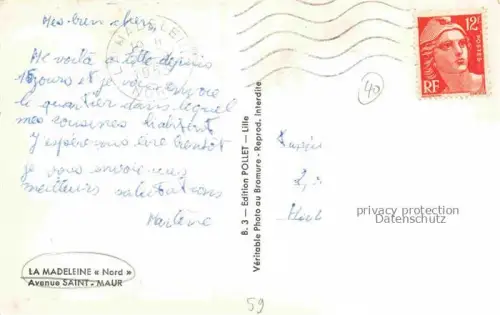 Mes bien chers
Me voilà à Lille depuis
15 jours et je vous envoie
le quartier dans lequel
mes cousines habitent
J'espère vous lire bientôt
je vous envoie mes
meilleurs salutations
Marlène
LA MADELEINE « Nord »
Avenue SAINT-MAUR
B. 3 — Edition POLLET — Lille
Véritable Photo au Bromure - Reprod. Interdite
LA MADELEINE
NORD
12F
POSTES
RF
40
privacy protection
Datenschutz
59